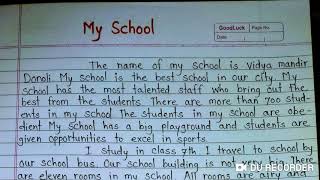 My School
GoodLuck
Page No.
Date
The name of my school is Vidya mandir
Donoli. My school is the best school in our city. My
school has the most talented staff who bring out the
best from the students. There are more than 700 stud-
ents in my school The students in my school are obe-
dient My school has a big playground and students are
given opportunities to excel in sports.
I study in class 7th I travel to school by
our school bus. Our school building is not big There
are eleven rooms in my school. All rooms are airy and
DU RECORDER